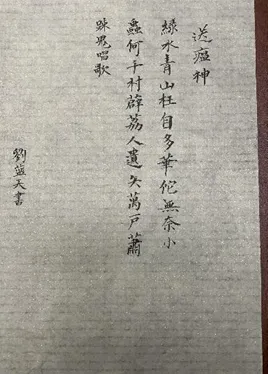 送瘟神
綠水青山枉自多華佗無奈小
蟲何千村薜荔人遺矢萬戶蕭
踈鬼唱歌
劉蓝天書